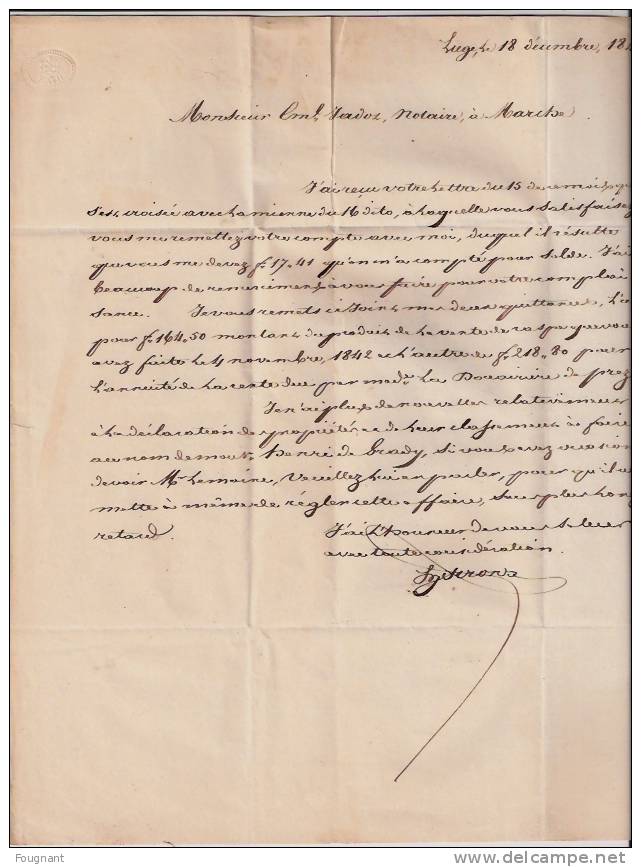 Liege, le 18 décembre, 18
Monsieur Eml. Jadot, Notaire, à Marche
J'ai reçu votre lettre du 15 de ce mois, qui
s'est croisée avec la mienne du 16 dito, à laquelle vous satisfaisez
vous me remettez votre compte avec moi, duquel il résulte
que vous me devez f. 17.41 qu'on m'a compté pour solde. J'ai
beaucoup de remerciments à vous faire pour votre complai
sance. Je vous remets ci-joint mes deux quittances, l'
pour f. 164.50 montant du produit de la vente de
avez faite le 4 novembre, 1842 et l'autre de f. 218.80 pour
l'annuité de la rente due par made. la Douairière de
Je n'ai plus de nouvelles relativement
à la déclaration de propriétés et de leur classement à faire
au nom de monsr. henri de Grady, si vous avez occasion
de voir Mr. Lemaire, veuillez lui en parler, pour qu'il
mette à même de régler cette affaire, sans plus long
retard.
J'ai l'honneur de vous saluer
avec toute considération.
Fougnant
www.delcampe.net